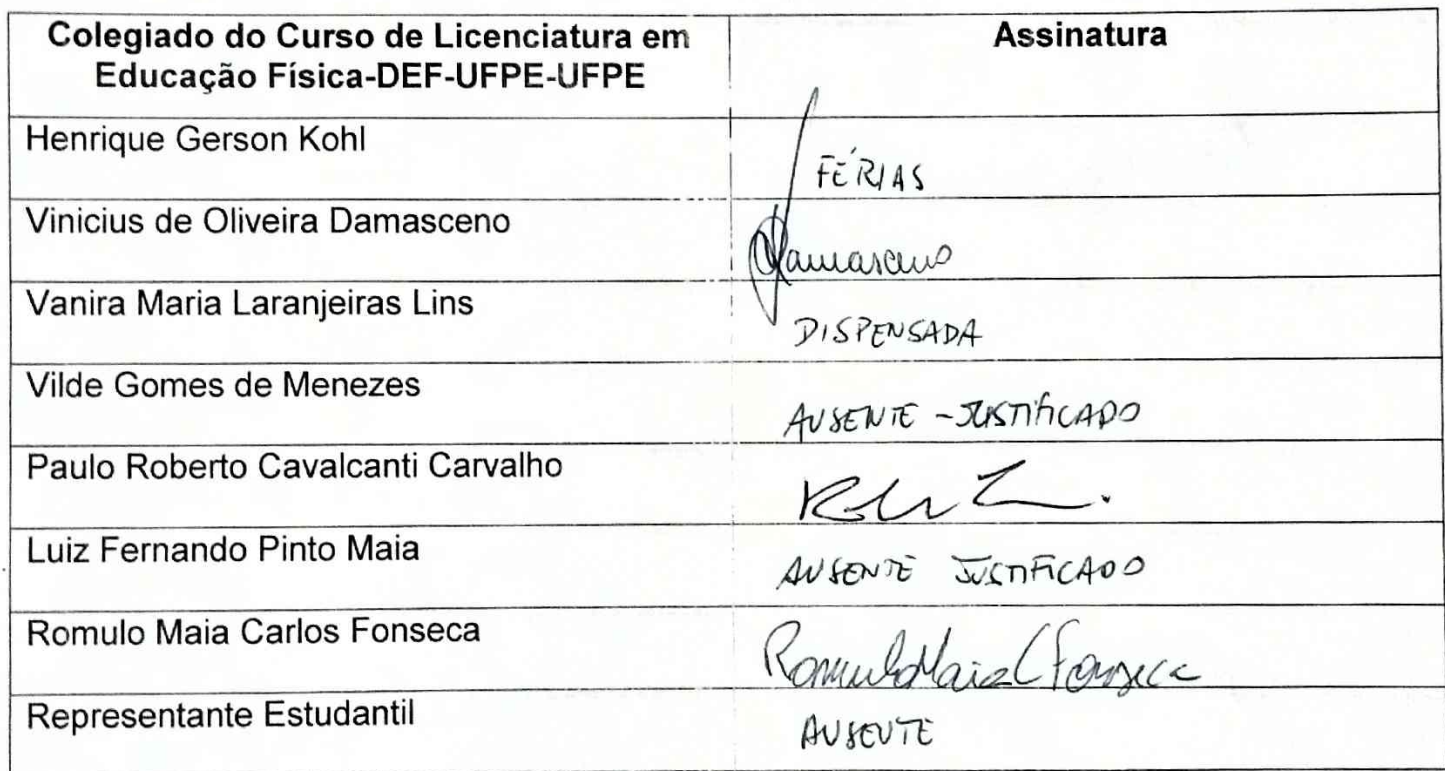 Colegiado do Curso de Licenciatura em
Educação Física-DEF-UFPE-UFPE
Assinatura
Henrique Gerson Kohl
FÉRIAS
Vinicius de Oliveira Damasceno
Damasceno
Vanira Maria Laranjeiras Lins
DISPENSADA
Vilde Gomes de Menezes
AUSENTE - JUSTIFICADO
Paulo Roberto Cavalcanti Carvalho
Luiz Fernando Pinto Maia
AUSENTE JUSTIFICADO
Romulo Maia Carlos Fonseca
Romulo Maia C Fonseca
Representante Estudantil
AUSENTE